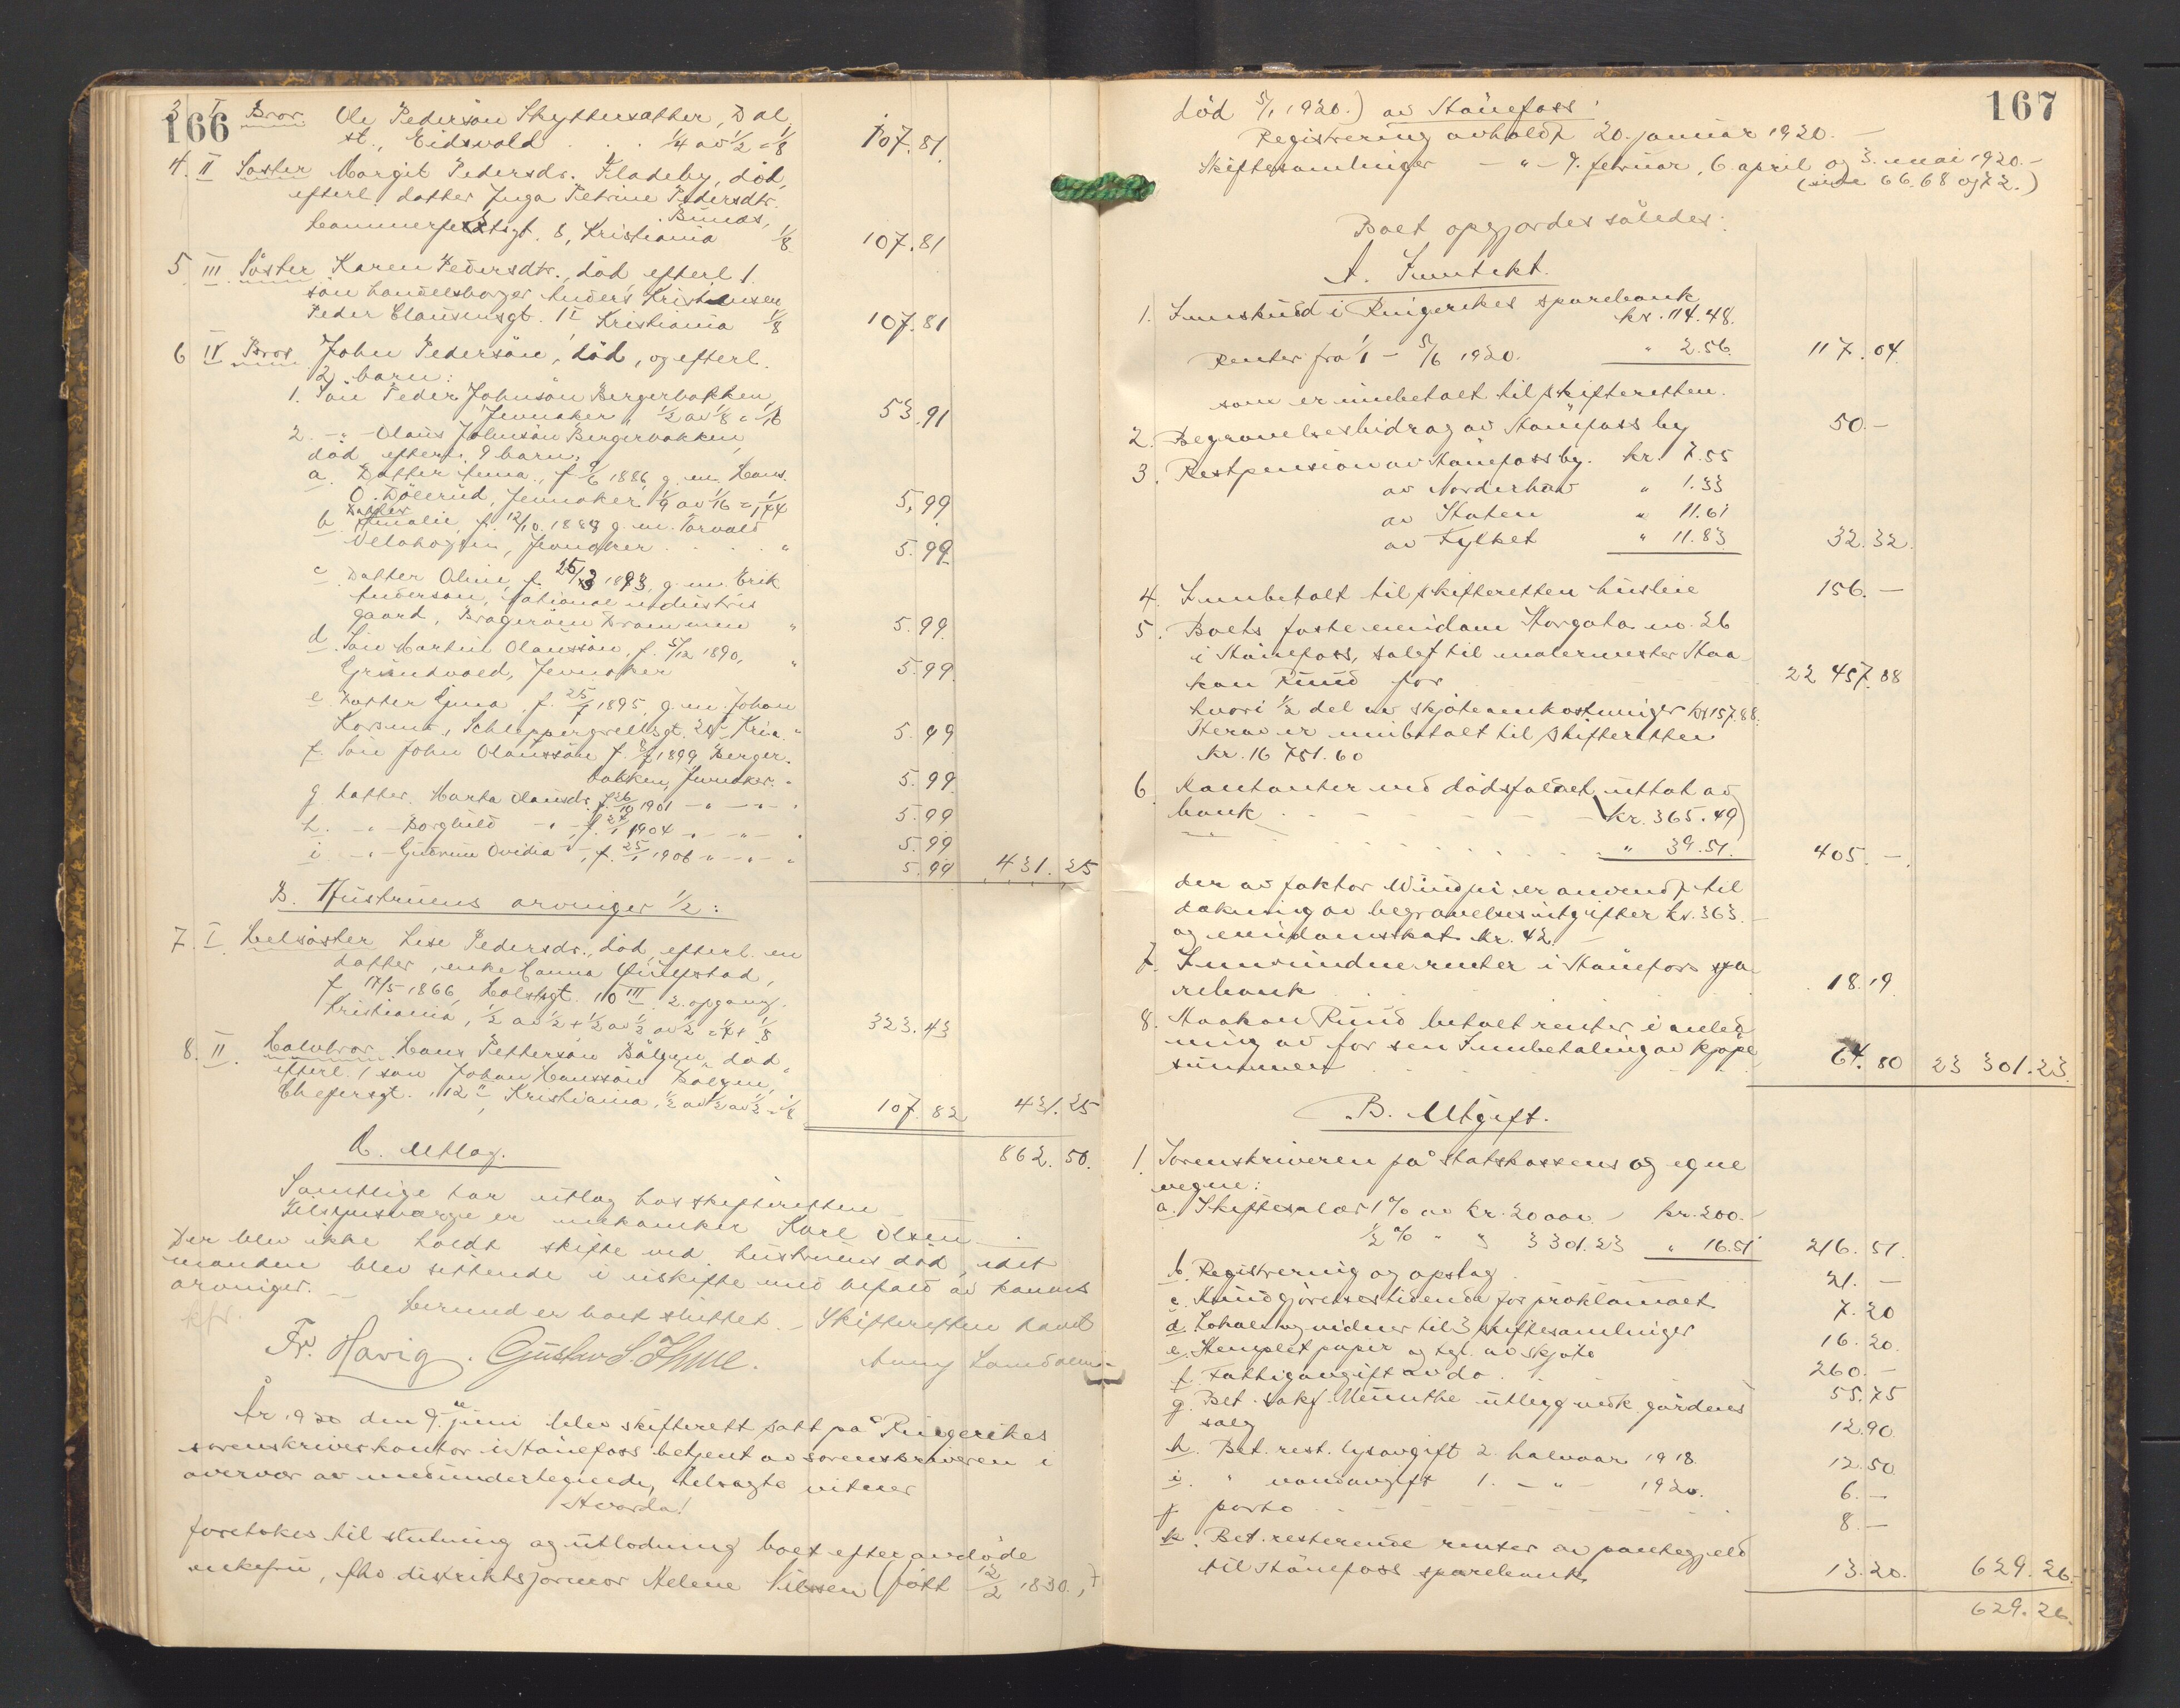 166
3 I Bror Ole Pedersön Skyttersæther, Dal
st., Eidsvold . . . 1/4 av 1/2 = 1/8 107.81
4. II Söster Margit Pedersdr. Fladeby, död,
efterl. datter Inga Petrine Pedersdtr.
Bunæs,
Hammerfestsgt. 8, Kristiania 1/8 107.81
5 III. Söster Karen Pedersdtr., död efterl. 1
sön handelsborger Anders Kristensen
Peder Clausensgt. 1 I Kristiania 1/8 107.81
6 IV Bror John Pedersön, död, og efterl.
2 barn:
1. Sön Peder Johnsön Bergerbakken,
Jevnaker, 1/2 av 1/8 = 1/16 53.91
2. -"- Olaus Johnsön Bergerbakken,
död efterl. 9 barn:
a. Datter Anna, f. 1886, g. m. Hans
O. Dölerud, Jevnaker 1/9 av 1/16 = 1/144 5,99
b. Datter Amalie, f. 12/10 1888 g. m. Torvald
, Jevnaker . . . " 5.99
c. Datter Oline, f. 25/3 1893, g. m. Erik
Anderson, National industris
gaard, Brageröen Drammen " 5.99
d. Sön Martin Olaussön, f. 5/12 1890,
Grindvold, Jevnaker " 5.99
e Datter Gina, f. 25/7 1895, g. m. Johan
, Schleppegrellsgt. Kria. " 5.99
f. Sön John Olaussön f. 1899 Berger-
bakken, Jevnaker. " 5.99
g Datter. Marta Olausdr. f. 26/10 1901 -"- -"- 5.99
h. -"- Borghild -"-, f. 27/1 1904 -"- -"- 5.99
i -"- Gudrun Ovidia -"-, f. 25/1 1906 -"- -"- 5.99 431.25
B. Hustruens arvinger 1/2:
7. I. Helsöster Lise Pedersdr., död, efterl. en
datter, enke Hanna
f. 17/5 1866, Holstsgt. 10 III 2. opgang.
Kristiania, 1/2 av 1/2 + 1/2 av 1/2 av 1/2 = 1/4 + 1/8 323.43
8. II. Halvbror Hans Pettersön Bölgen, död,
efterl. 1 sön Johan Hanssön Bölgen,
gt. 12 II, Kristiania, 1/2 av 1/2 av 1/2 = 1/8 107.82 431.25
862.50.
C. Utlag.
Samtlige har utlag hos skifteretten
Tilsynsverge er mekaniker Karl Olsen
Der blev ikke holdt skifte ved hustruens död, idet
manden blev sittende i uskifte med bifald av hennes
arvinger. —
Hermed er boet sluttet. — Skifteretten hævet
Fr. Havig. Gustav S. Ihme. Anny
År 1920 den 9. de juni blev skifterett satt på Ringerikes
sorenskriverkontor i Hönefoss betjent av sorenskriveren i
overvær av medundertegnede, tilsagte vitner
Hvorda!
foretokes til slutning og utlodning boet efter avdöde
enkefru, fhv. distriktsjormor Helene Nilssen (född 12/2 1830,
167
död 5/1 1920.) av Hönefoss:
Registrering avholdt 20. januar 1920. —
Skiftesamlinger -"- 9. februar, 6 april og 3. mai 1920. —
(side 66. 68 og 72.)
Boet opgjordes således:
A. Inntekt.
1. Innskudd i Ringerikes sparebank
kr. 114.48.
Renter fra 1/1 - 5/6 1920. " 2.56. 117.04.
som er innbetalt til skifteretten.
2. Begravelsesbidrag av Hönefoss by 50.—
3. Restpension av Hönefoss by. kr. 7.55
av Norderhov " 1.33
av Staten " 11.61
av Fylket " 11.83 32.32.
4. Innbetalt til skifteretten husleie 156.—
5. Boets faste eiendom Storgata no. 26
i Hönefoss, solgt til malermester Haa-
kon Ruud for 22 457.88
hvori 1/2 del av skjöteomkostninger kr 157.88.
Herav er innbetalt til skifteretten
kr. 16 751.60
6. Kontanter ved dödsfaldet, uttat av
bank . . . kr. 365.49)
" 39.51. 405.—.
der av faktor er anvendt til
dækning av begravelsesutgifter kr. 363.—
og eiendomsskat kr. 42.—
7. Innvundne renter i Hönefoss spa-
rebank 18.19
8. Haakon Ruud betalt renter i anled-
ning av for sen Innbetaling av kjöpe
summen 64.80 23 301.23.
B. Utgift.
1. Sorenskriveren på statskassens og egne
vegne:
a. Skiftesalær 1% av kr. 20000.— kr. 200.—
1/2 % " " 3 301.23 " 16.51 216.51.
b. Registrering og opslag 21.—
c. Kundgjörelsestidende for proklamaet 7.20
d. Lokale og vidner til 3 skiftesamlinger 16.20.
e. Stemplet papir og tgl. av skjöte 260.—
f. Fattigavgift av do. 55.75
g. Bet. sakf. Munthe utlegg vedk. gårdens
salg 12.90
h. Bet. rest. lysavgift 2. halvaar 1918. 12.50
i. " vandavgift 1. -"- 1920. 6.—
j porto 8.—
k. Bet. resterende renter av pantegjeld
til Hönefoss sparebank 13.20. 629.26.
629.26.